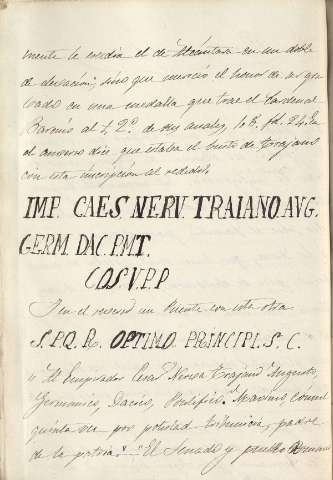 mente le excedia el de Alcántara en un doble
de elevacion; sino que mereció el honor de ser gra-
vado en una medalla que trae el Cardenal
Baronio al t. 2º. de sus anales,
al anverso dice que estaba el busto de Trajano
con esta inscripcion al rededor.
IMP. CAES. NERV. TRAIANO. AVG.
GERM. DAC. P.M.T.
COS. V. P. P
Y en el reverso un Puente con esta otra
S. P. Q. R. OPTIMO. PRINCIPI. S. C.
"Al Emperador Cesar Nerva Trajano Augusto,
Germanico, Dacico, Pontifice Maximo, Cónsul
quinta vez por potestad tribunicia, padre
de la patria." "El Senado y pueblo Romano